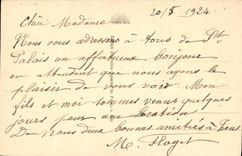 20/5 1924
Chère Madame
Nous vous adressons à tous de St
Palais un affectueux bonjour
en attendant que nous ayons le
plaisir de vous voir Mon
fils et moi sommes venus quelques
jours pour une location
De nous deux bonnes amitiés à Tous
M.